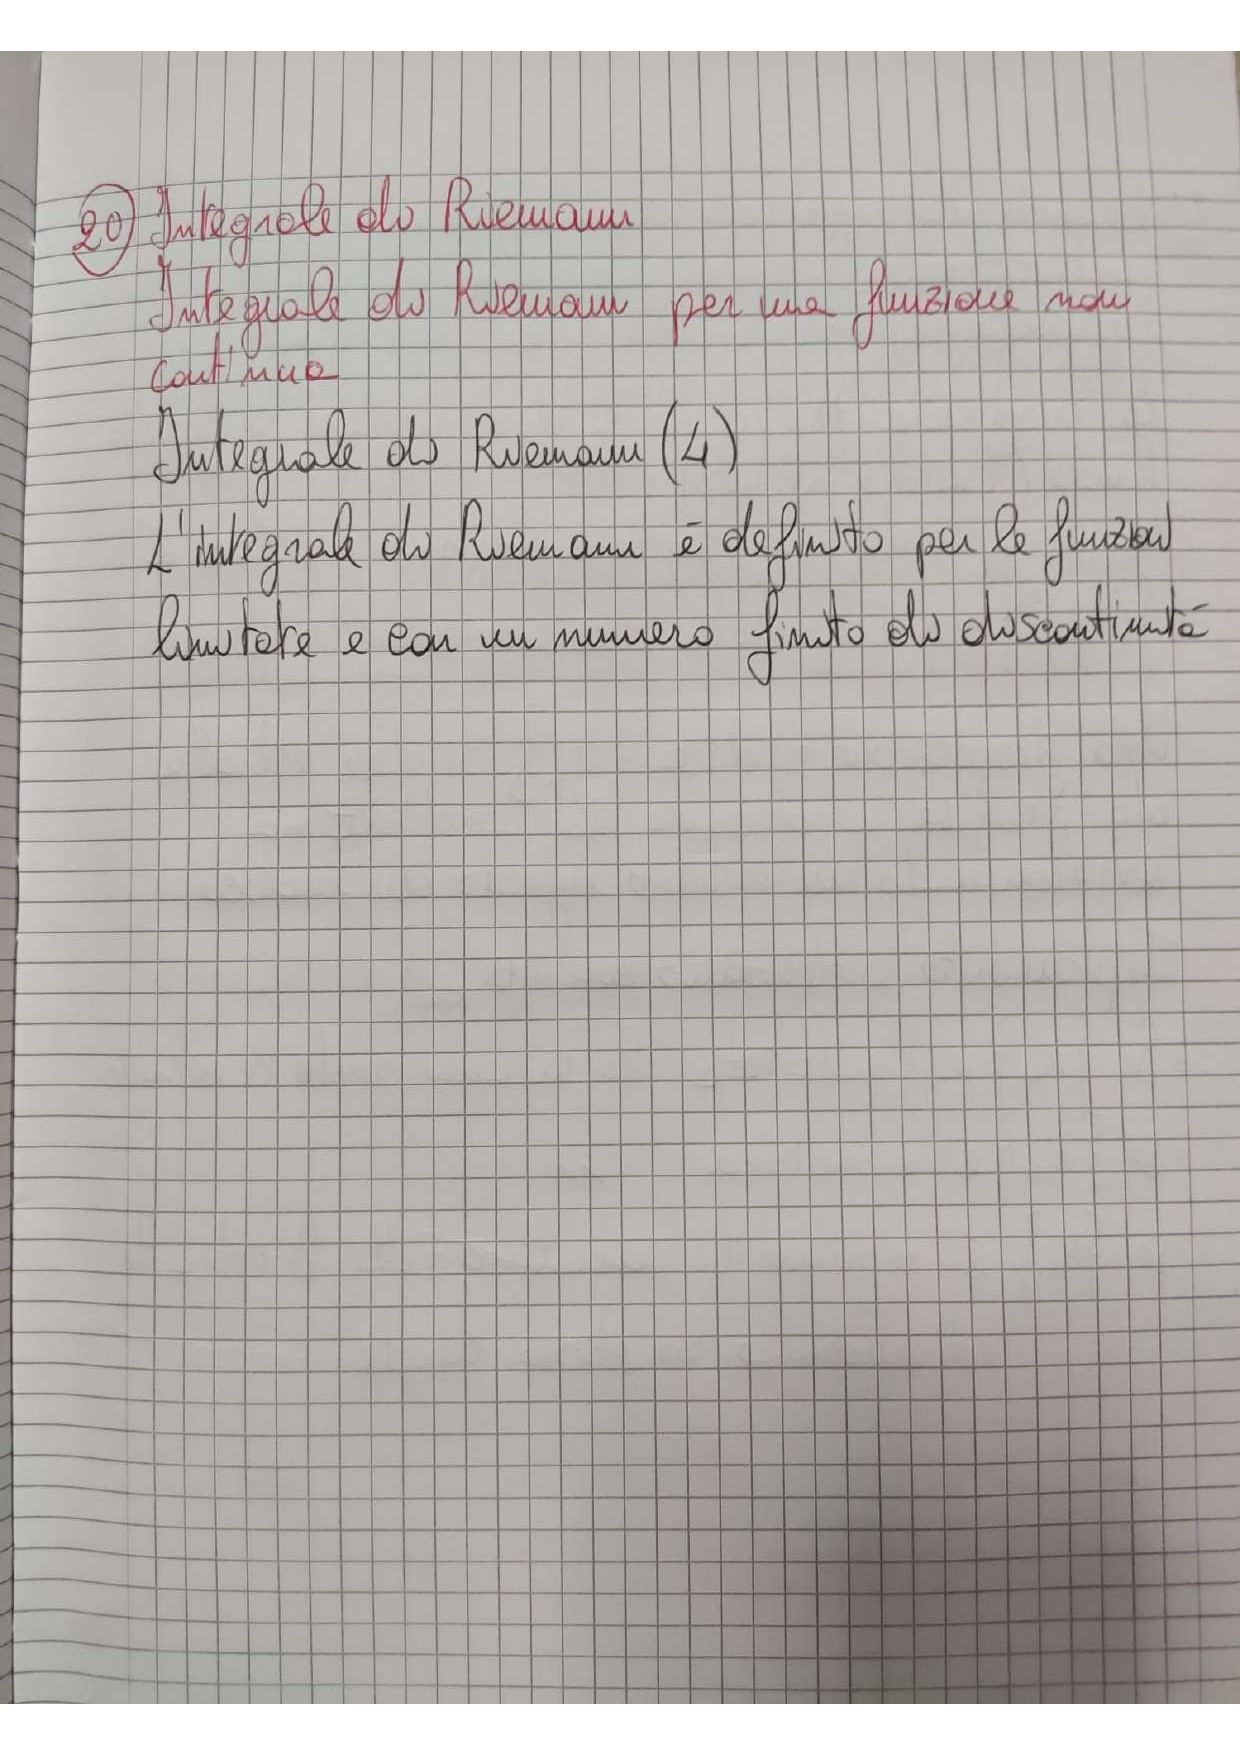 20) Integrale di Riemann
Integrale di Riemann per una funzione non
continua
Integrale di Riemann (4)
L'integrale di Riemann è definito per le funzioni
limitate e con un numero finito di discontinuità